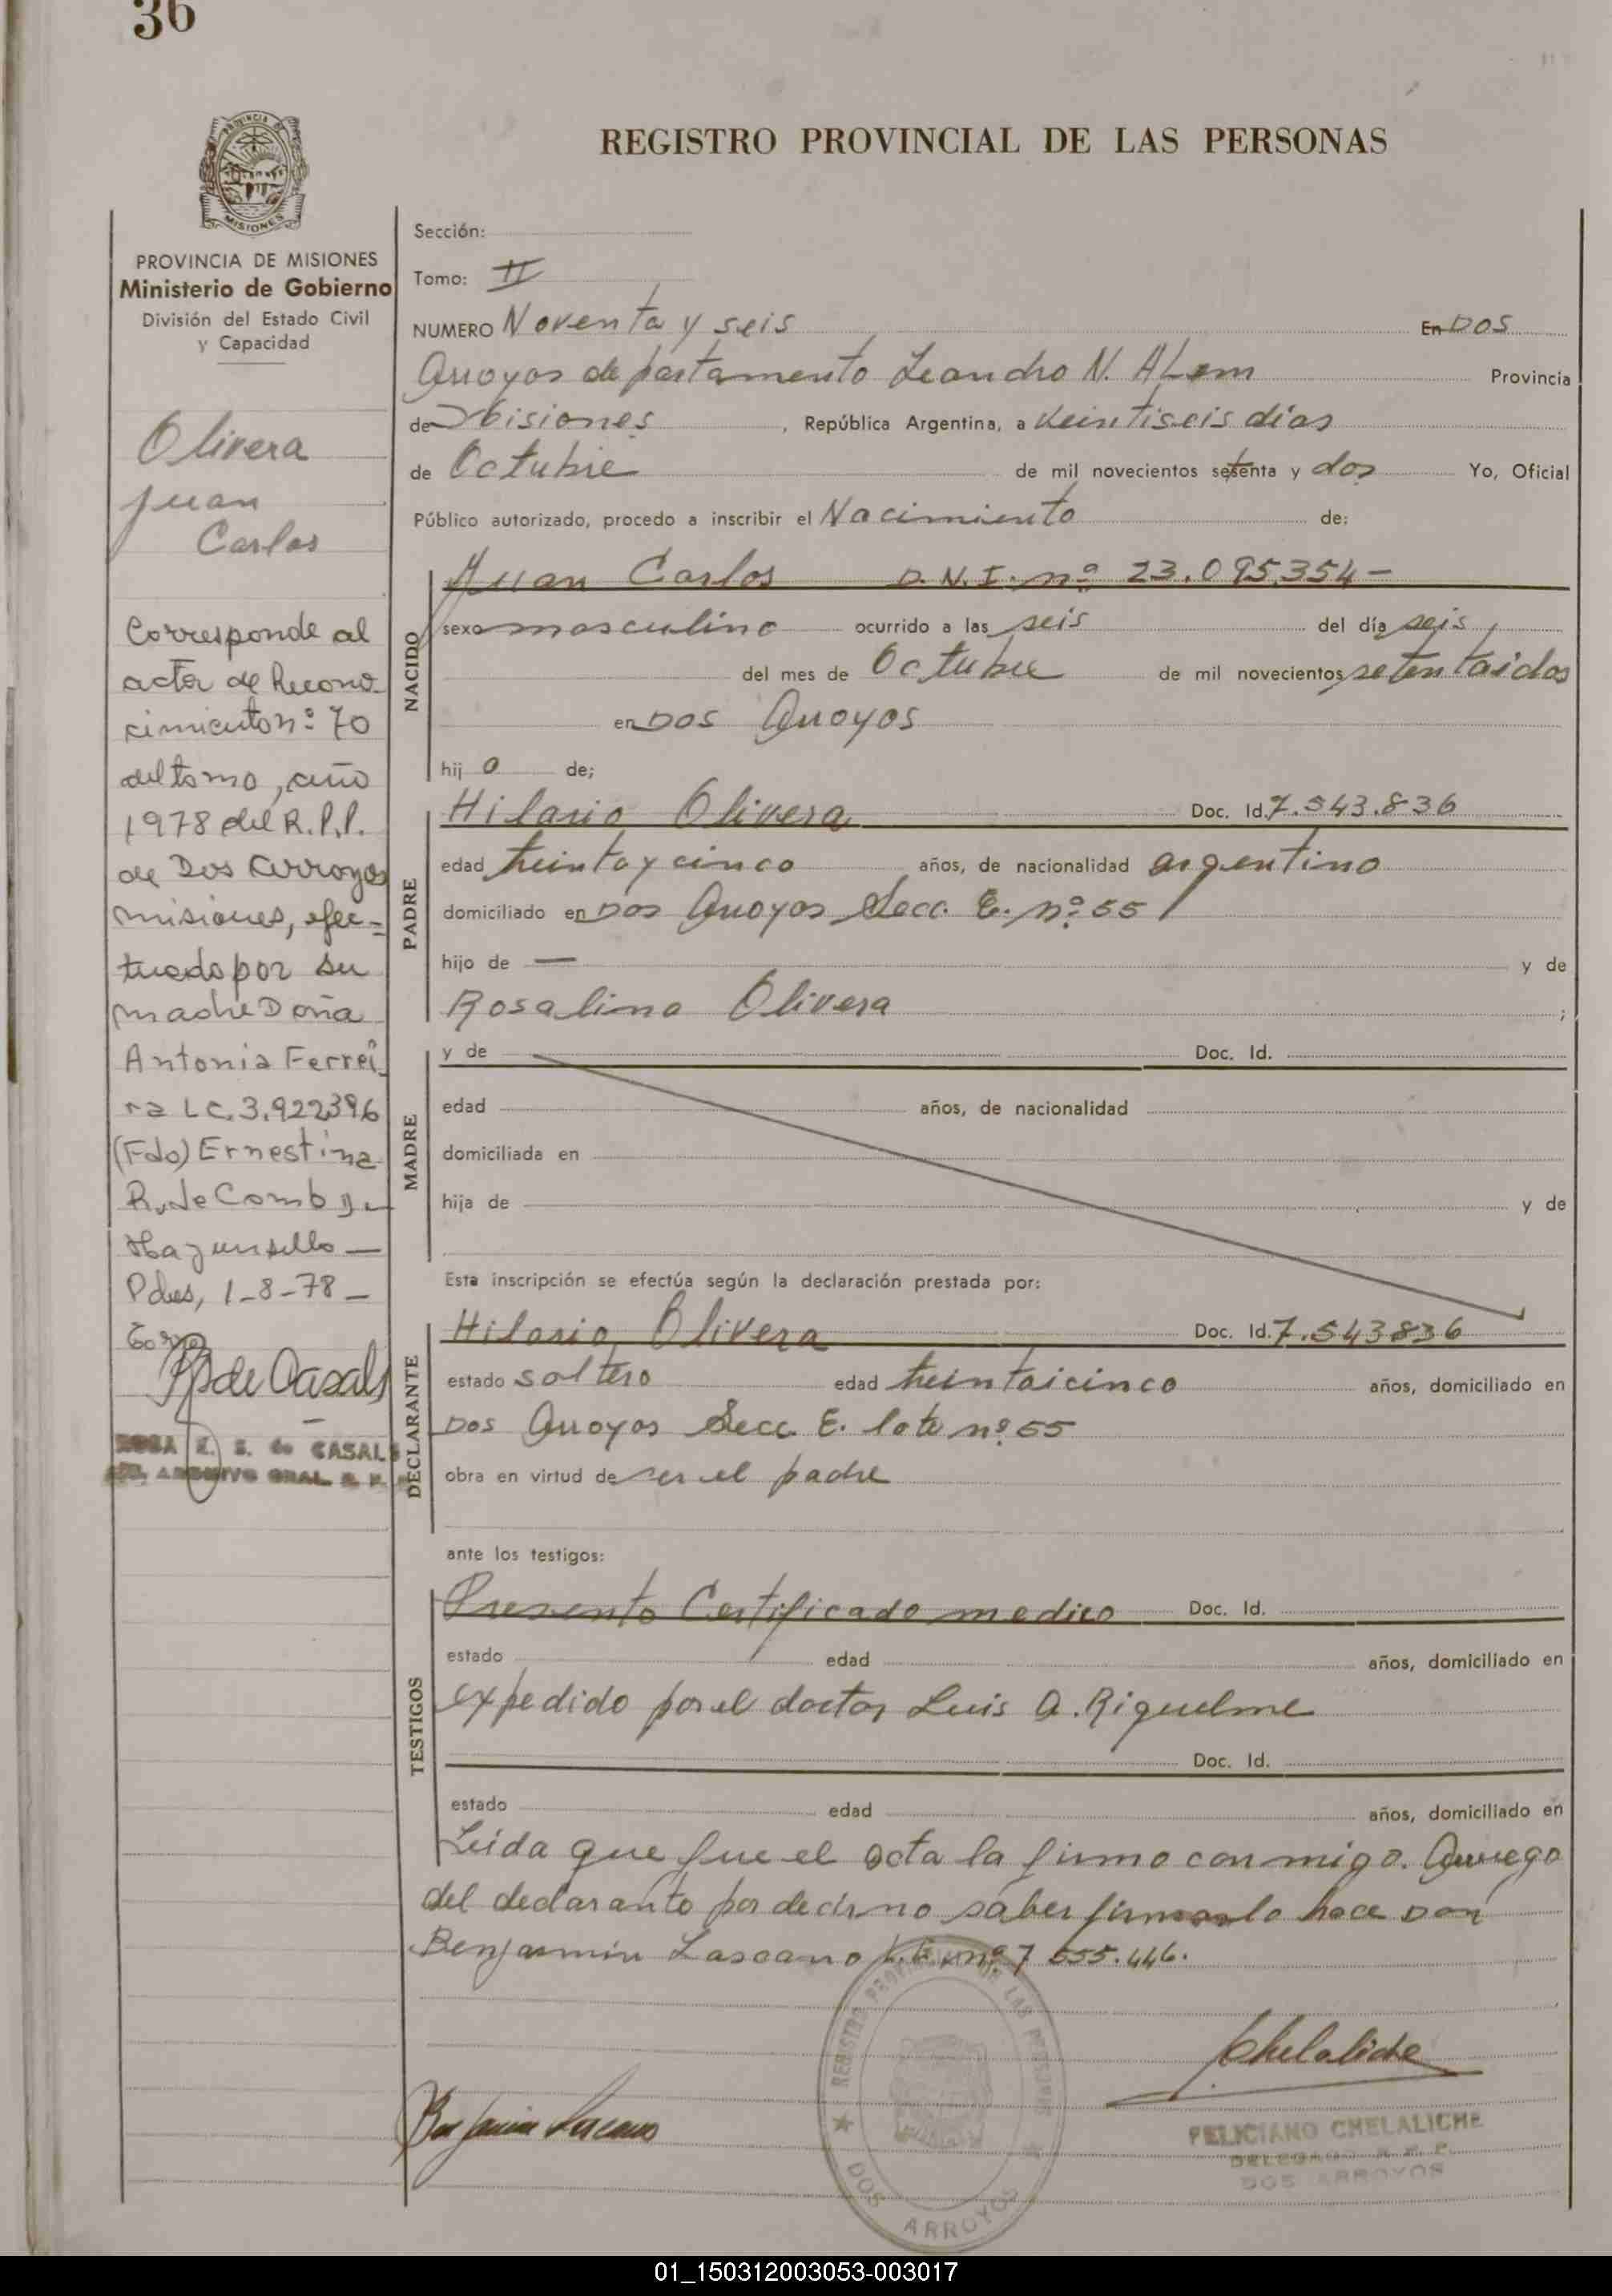 36
REGISTRO PROVINCIAL DE LAS PERSONAS
PROVINCIA DE MISIONES
Ministerio de Gobierno
División del Estado Civil
y Capacidad
Olivera
Juan
Carlos
Corresponde al
acta de Recono-
cimiento nº 70
del tomo, año
1978 del R.P.P.
de Dos Arroyos
misiones, efec-
tuado por su
madre Doña
Antonia Ferrei-
ra LC. 3.922396
(Fdo) Ernestina
R. de Comb
Hay un sello —
Pdas, 1-8-78 —
de Casals
ROSA E. S. de CASALS
ARCHIVO GRAL. R. P.
Sección:
Tomo: II
NUMERO Noventa y seis En Dos
Arroyos departamento Leandro N. ALem Provincia
de Misiones, República Argentina, a Veintiseis días
de Octubre de mil novecientos setenta y dos Yo, Oficial
Público autorizado, procedo a inscribir el Nacimiento de:
NACIDO
Juan Carlos D.N.I. nº 23.095.354-
sexo masculino ocurrido a las seis del día seis,
del mes de Octubre de mil novecientos setentaidos
en Dos Arroyos
hijo de;
PADRE
Hilario Olivera Doc. Id. 7.543.836
edad treinta y cinco años, de nacionalidad argentino
domiciliado en Dos Arroyos Secc. E. nº 55
hijo de — y de
Rosalina Olivera ;
MADRE
y de Doc. Id.
edad años, de nacionalidad
domiciliada en
hija de y de
Esta inscripción se efectúa según la declaración prestada por:
DECLARANTE
Hilario Olivera Doc. Id. 7.543836
estado soltero edad treintaicinco años, domiciliado en
Dos Arroyos Secc. E. lote nº 55
obra en virtud de ser el padre
ante los testigos:
TESTIGOS
Presento Certificado medico Doc. Id.
estado edad años, domiciliado en
expedido por el doctor Luis A. Riquelme
Doc. Id.
estado edad años, domiciliado en
Leida que fue el acta la firmo con migo. Arruego
del declarante por decir no saber firmar lo hace Don
Benjamin Lascano L.E. nº 7 555.446.
Benjamin Lascano
REGISTRO PROVINCIAL DE LAS PERSONAS
DOS ARROYOS
Chelaliche
FELICIANO CHELALICHE
DELEGADO R. P. P.
DOS ARROYOS
01_150312003053-003017